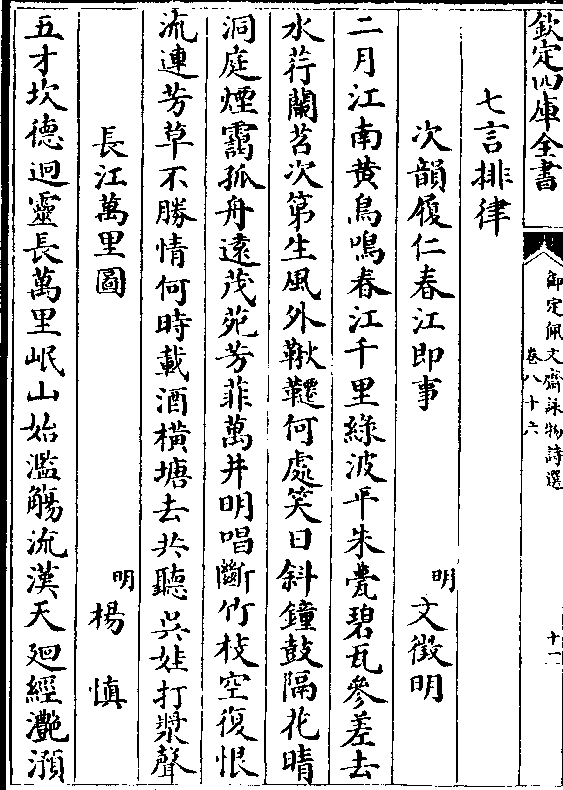 欽定四庫全書
御定佩文齋詠物詩選
卷八十六
十一
七言排律
次韻履仁春江即事
明 文徵明
二月江南黄鳥鳴春江千里綠波平朱甍碧瓦參差去
水荇蘭苕次第生風外鞦韆何處笑日斜鐘鼓隔花晴
洞庭煙靄孤舟遠茂苑芳菲萬井明唱斷竹枝空復恨
流連芳草不勝情何時載酒橫塘去共聽吳娃打槳聲
長江萬里圖
明 楊慎
五才坎德迥靈長萬里岷山始濫觴流漢天廻經灔澦